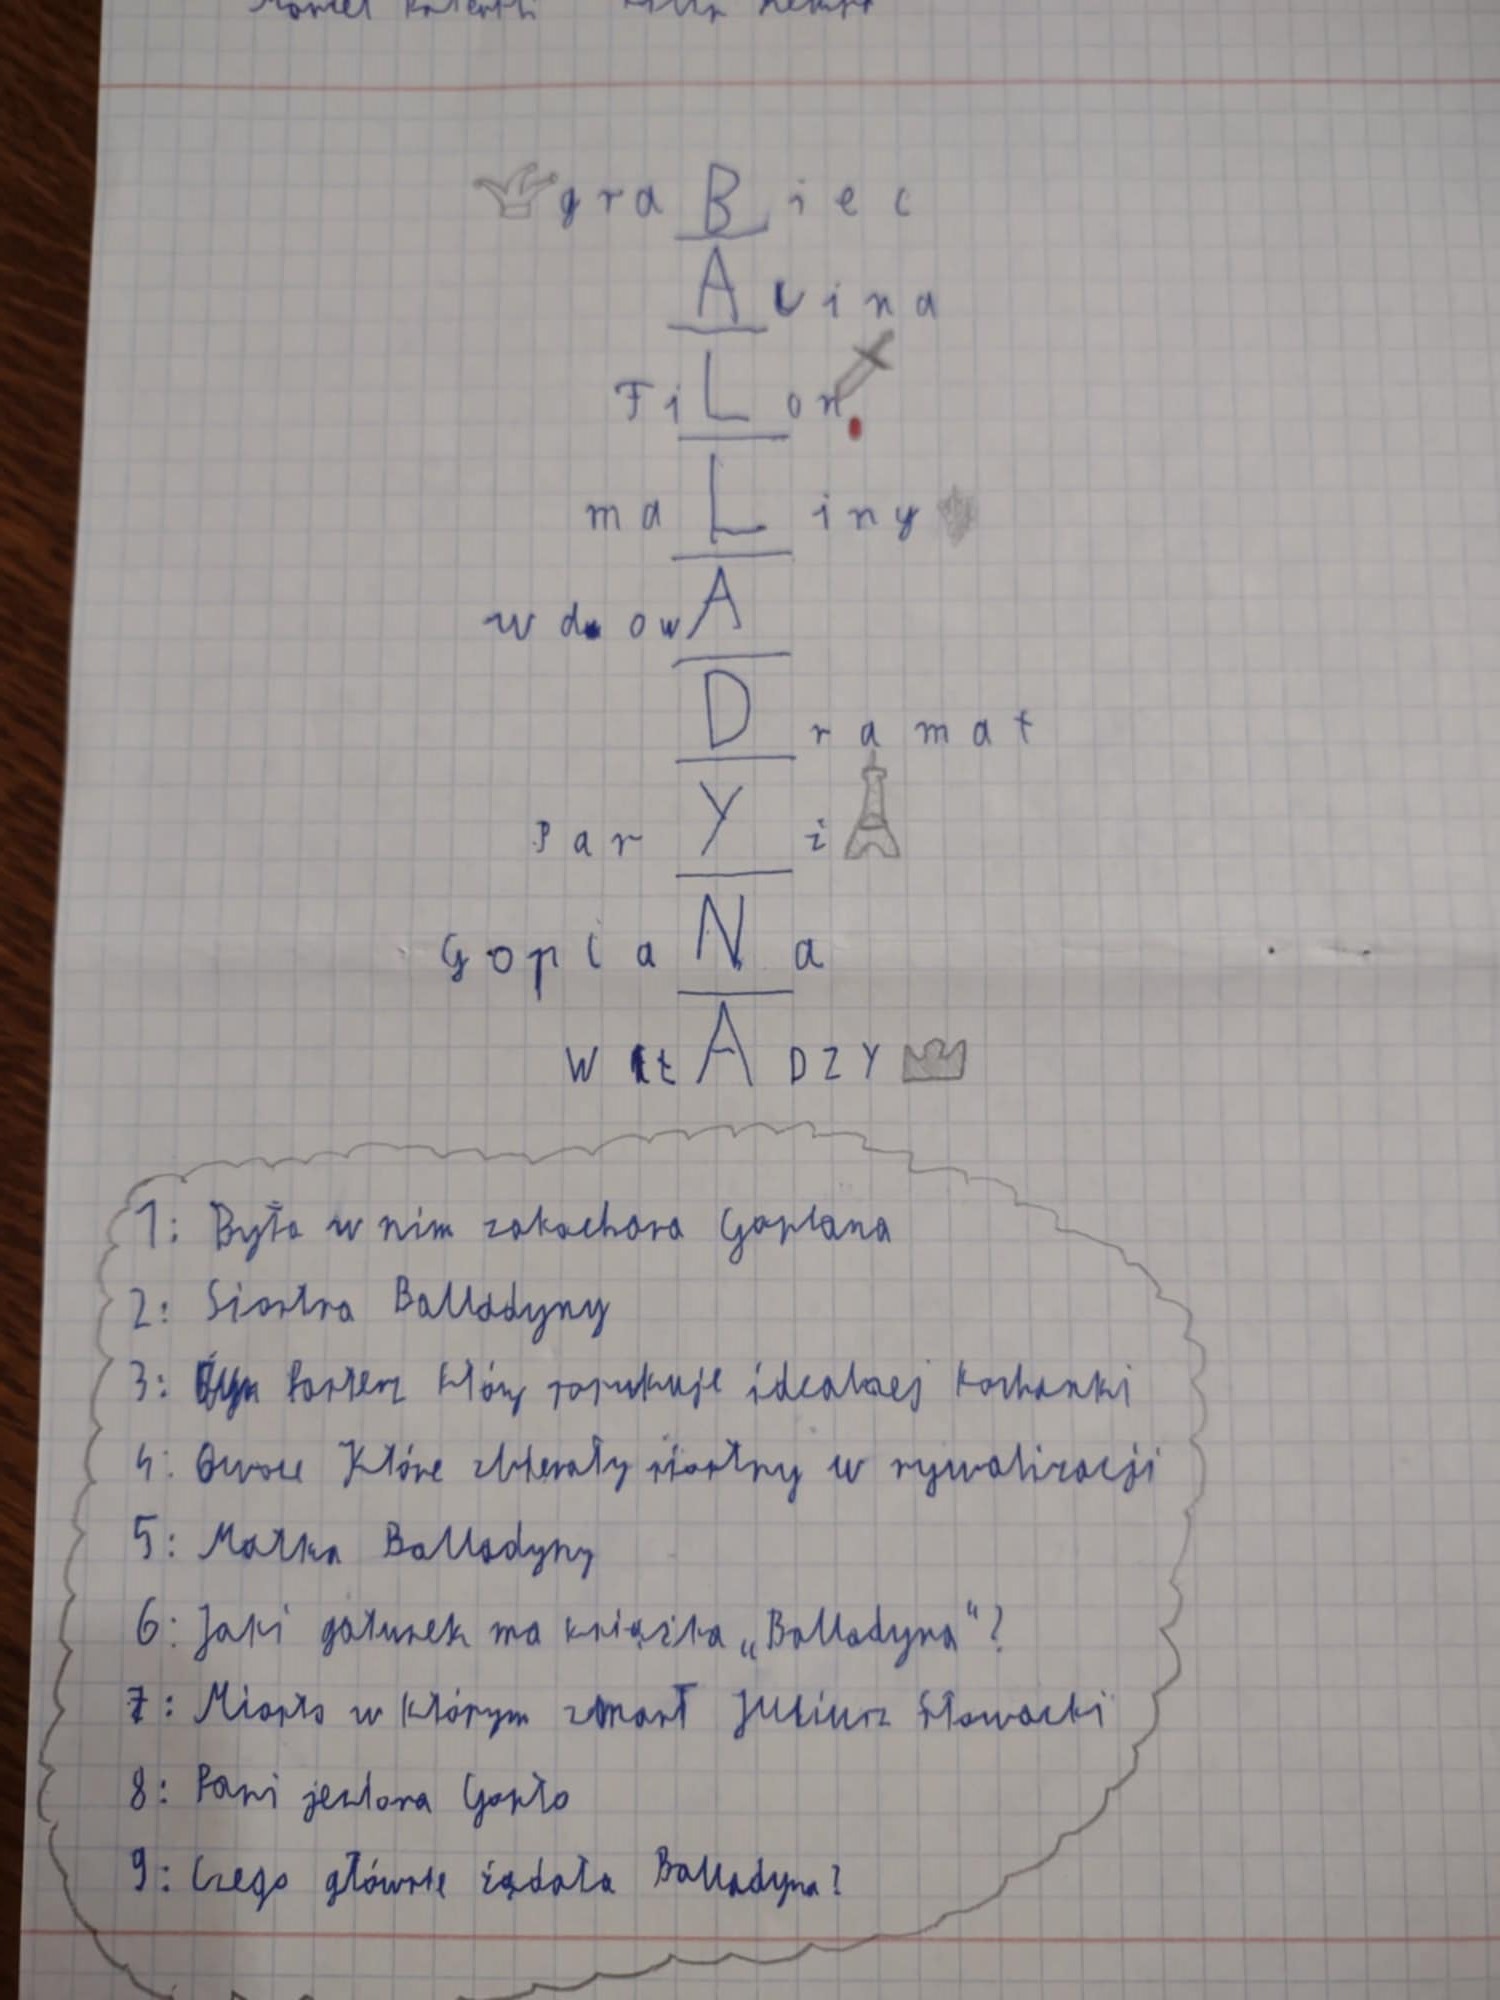 graBiec
ALina
FiLon
maLiny
wdowA
Dramat
ParYż
GoplaNa
WŁADZY
1: Była w nim zakochana Goplana
2: Siostra Balladyny
3: Pasterz który poszukuje idealnej kochanki
4: Owoce Które zbierały siostry w rywalizacji
5: Matka Balladyny
6: Jaki gatunek ma książka „Balladyna"?
7: Miasto w którym zmarł Juliusz Słowacki
8: Pani jeziora Gopło
9: Czego głównie żądała Balladyna?